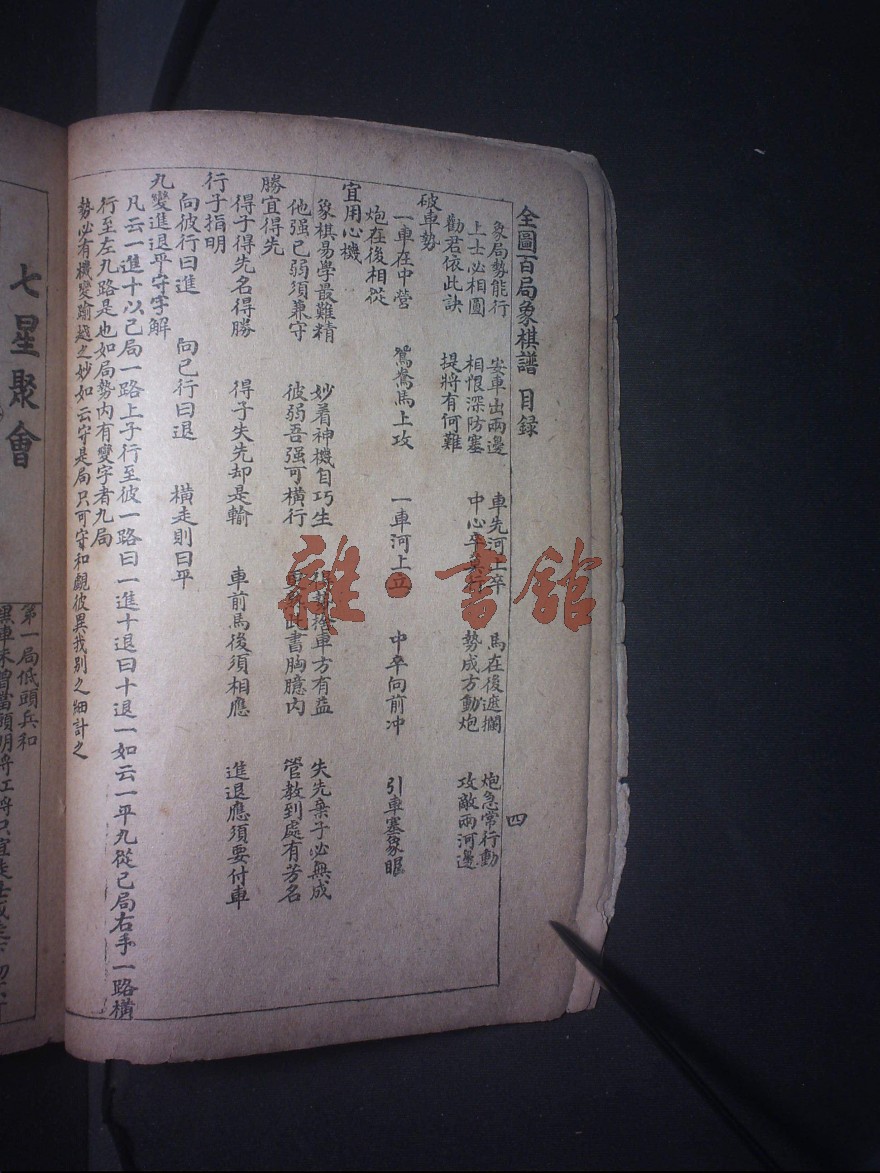 全圖百局象棋譜 目録 四
象局勢能行 安車出兩邊 車先河上卒 馬在後遮攔 炮急常行動
上士必相圓 相恨深防塞 中心卒 勢成方動炮 攻敵兩河邊
勸君依此訣 提將有何難
破車勢
一車在中營 鴛鴦馬上攻 一車河上立 中卒向前冲 引車塞象眼
炮在後相從
宜用心機
象棋易學最難精 妙着神機自巧生 捨車方有益 失先棄子必無成
他强已弱須兼守 彼弱吾强可横行 此書胸臆内 管教到處有芳名
勝宜得先
得子得先名得勝 得子失先却是輸 車前馬後須相應 進退應須要付車
行子指明
向彼行曰進 向已行曰退 橫走則曰平
九變進退平守字解
凡云一進十以已局一路上子行至彼一路曰一進十退曰十退一如云一平九從已局右手一路橫
行至左九路是也如局勢内有變字者九局
勢必有機變踰越之妙如云守是局只可守和觀彼異我別之細計之
七星聚會
第一局低頭兵和
雜·書館